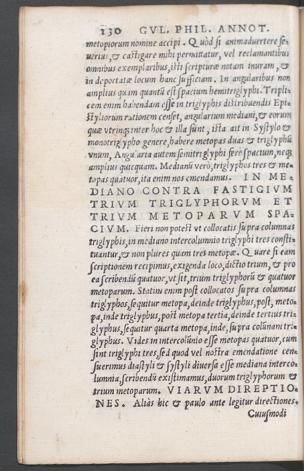 130 GVL. PHIL. ANNOT.
metopiorum nomine accipi. Quòd si animaduertere se-
uerius, & castigare mihi permittatur, vel reclamantibus
omnibus exemplaribus, isti scripturæ notam inuram, &
in deportatæ locum hanc sufficiam. In angularibus non
amplius quim quantũ est spacium hemitriglyphi. Tripli-
cem enim habendam esse in triglyphis distribuendis Epi-
styliorum rationem censet, angularium mediani, & eorum
quæ vtrinq; inter hoc & illa sunt, ista ait in Systylo &
monotriglypho genere, habere metopas duas & triglyphũ
vnum, Angularia autem semitriglyphi fere spactum, neq;
amplius quicquam. Medianũ verò, triglyphos tres & me-
topas quatuor, ita enim nos emendamus. IN ME-
DIANO CONTRA FASTIGIVM
TRIVM TRIGLYPHORVM ET
TRIVM METOPARVM SPA-
CIVM. Fieri non potest vt collocatis supra columnas
triglyphis, in mediano intercolumnio triglyphi tres consti-
tuantur, & non plures quam tres metopæ. Quare si eam
scriptionem recipimus, exigenda loco, dictio trium, & pro
ea scribendũ quatuor, vt sit, trium triglyphorũ & quatuor
metoparum. Statim enim post collocatos supra columnas
triglyphos, sequitur metopa, deinde triglyphus, post, meto-
pa, inde triglyphus, post metopa tertia, deinde tertius tri-
glyphus, sequitur quarta metopa, inde, supra colũnam tri-
glyphus. Vides in intercolũnio esse metopas quatuor, cum
sint triglyphi tres, sed quod vel nostra emendatione cen-
suerimus diastyli & systyli diuersa esse mediana interco-
lumnia, scribendũ existimamus, duorum triglyphorum &
trium metoparum. VIARVM DIREPTIO-
NES. Aliàs hic & paulo ante legitur directiones.
Cuiusmodi